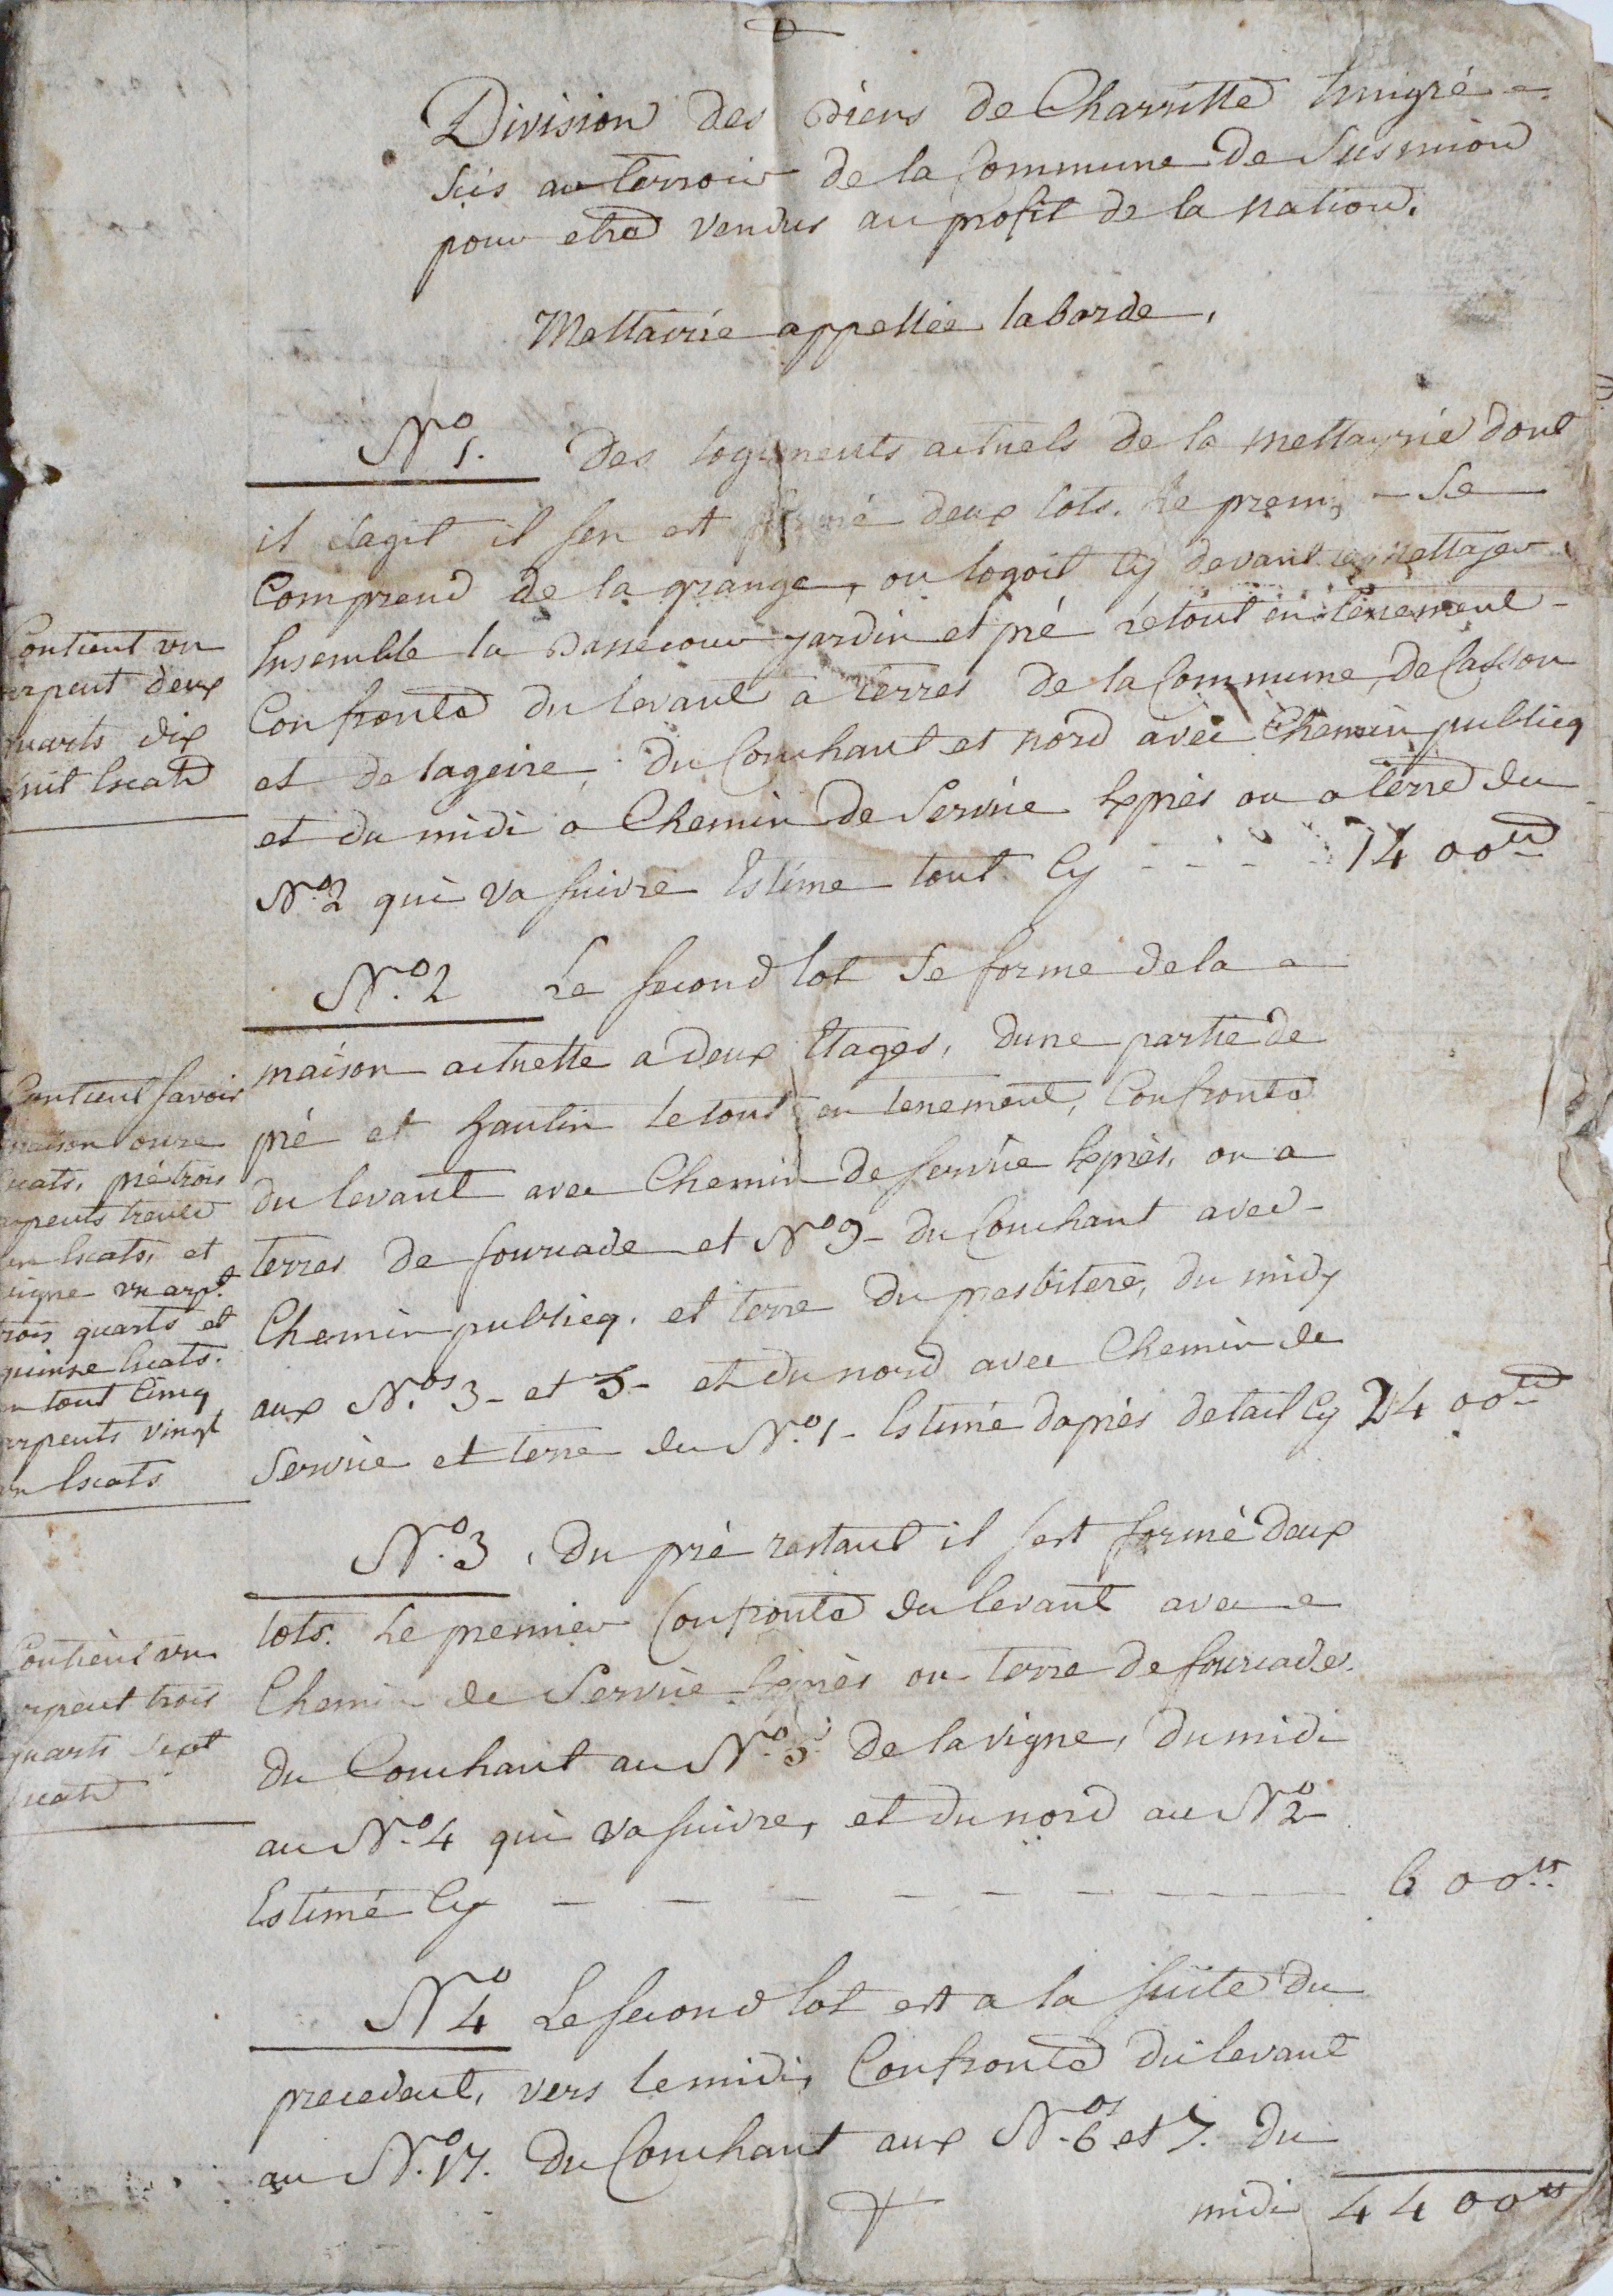 Division des Biens de Charritte Emigré
sis au terroir de la Commune de Susmiou
pour etre vendus au profit de la nation.
Mettairie appellée laborde,
N.º 1. Des logements actuels de la mettayrie dont
il s'agit il s'en est formé deux lots. Le premr. Se
Comprend de la grange, ou logoit Cy devant le mettayer.
Ensemble la Bassecour jardin et pré le tout en tenement
Confronte du levant a terres de la Commune, de Casson
et de lageire, du Couchant et nord avec Chemin publicq
et du midi a Chemin de Servie Exprès ou a terre du
N.º 2 qui va suivre Estimé tout Cy - - - - 1400 tt
Contient un
arpent deux
quarts dix
huit Escats
N.º 2 Le second lot se forme de la
maison actuelle a deux Etages, dune partie de
pré et hautin le tout en tenement, Confronte
du levant avec Chemin de servie Exprès, ou a
terres de fourcade et N.º 9 - du Couchant avec
Chemin publicq. et terre du presbitere, du midy
aux N.os 3 - et 5 - et du nord avec Chemin de
Servie et terre du N.º 1 - Estimé daprès detail Cy 2400 tt
Contient savoir
maison onze
Escats, pré trois
arpents trente
un Escats, et
vigne un arpt.
trois quarts et
quinze Escats.
en tout Cinq
arpents vingt
un Escats
N.º 3. Du pré restant il s'est formé deux
lots. Le premier Confronte du levant avec
Chemin de Servie Exprès ou terre de fourcade.
du Couchant au N.º 5 de la vigne, du midi
au N.º 4 qui va suivre, et du nord au N.º 2
Estimé Cy - - - - - - - - 600 tt
Contient un
arpent trois
quarts sept
Escats
N.º 4 Le second lot est a la suite du
precedent, vers le midi, Confronte du levant
au N.º 17. du Couchant aux N.os 6 et 7. du
midi 4400 tt